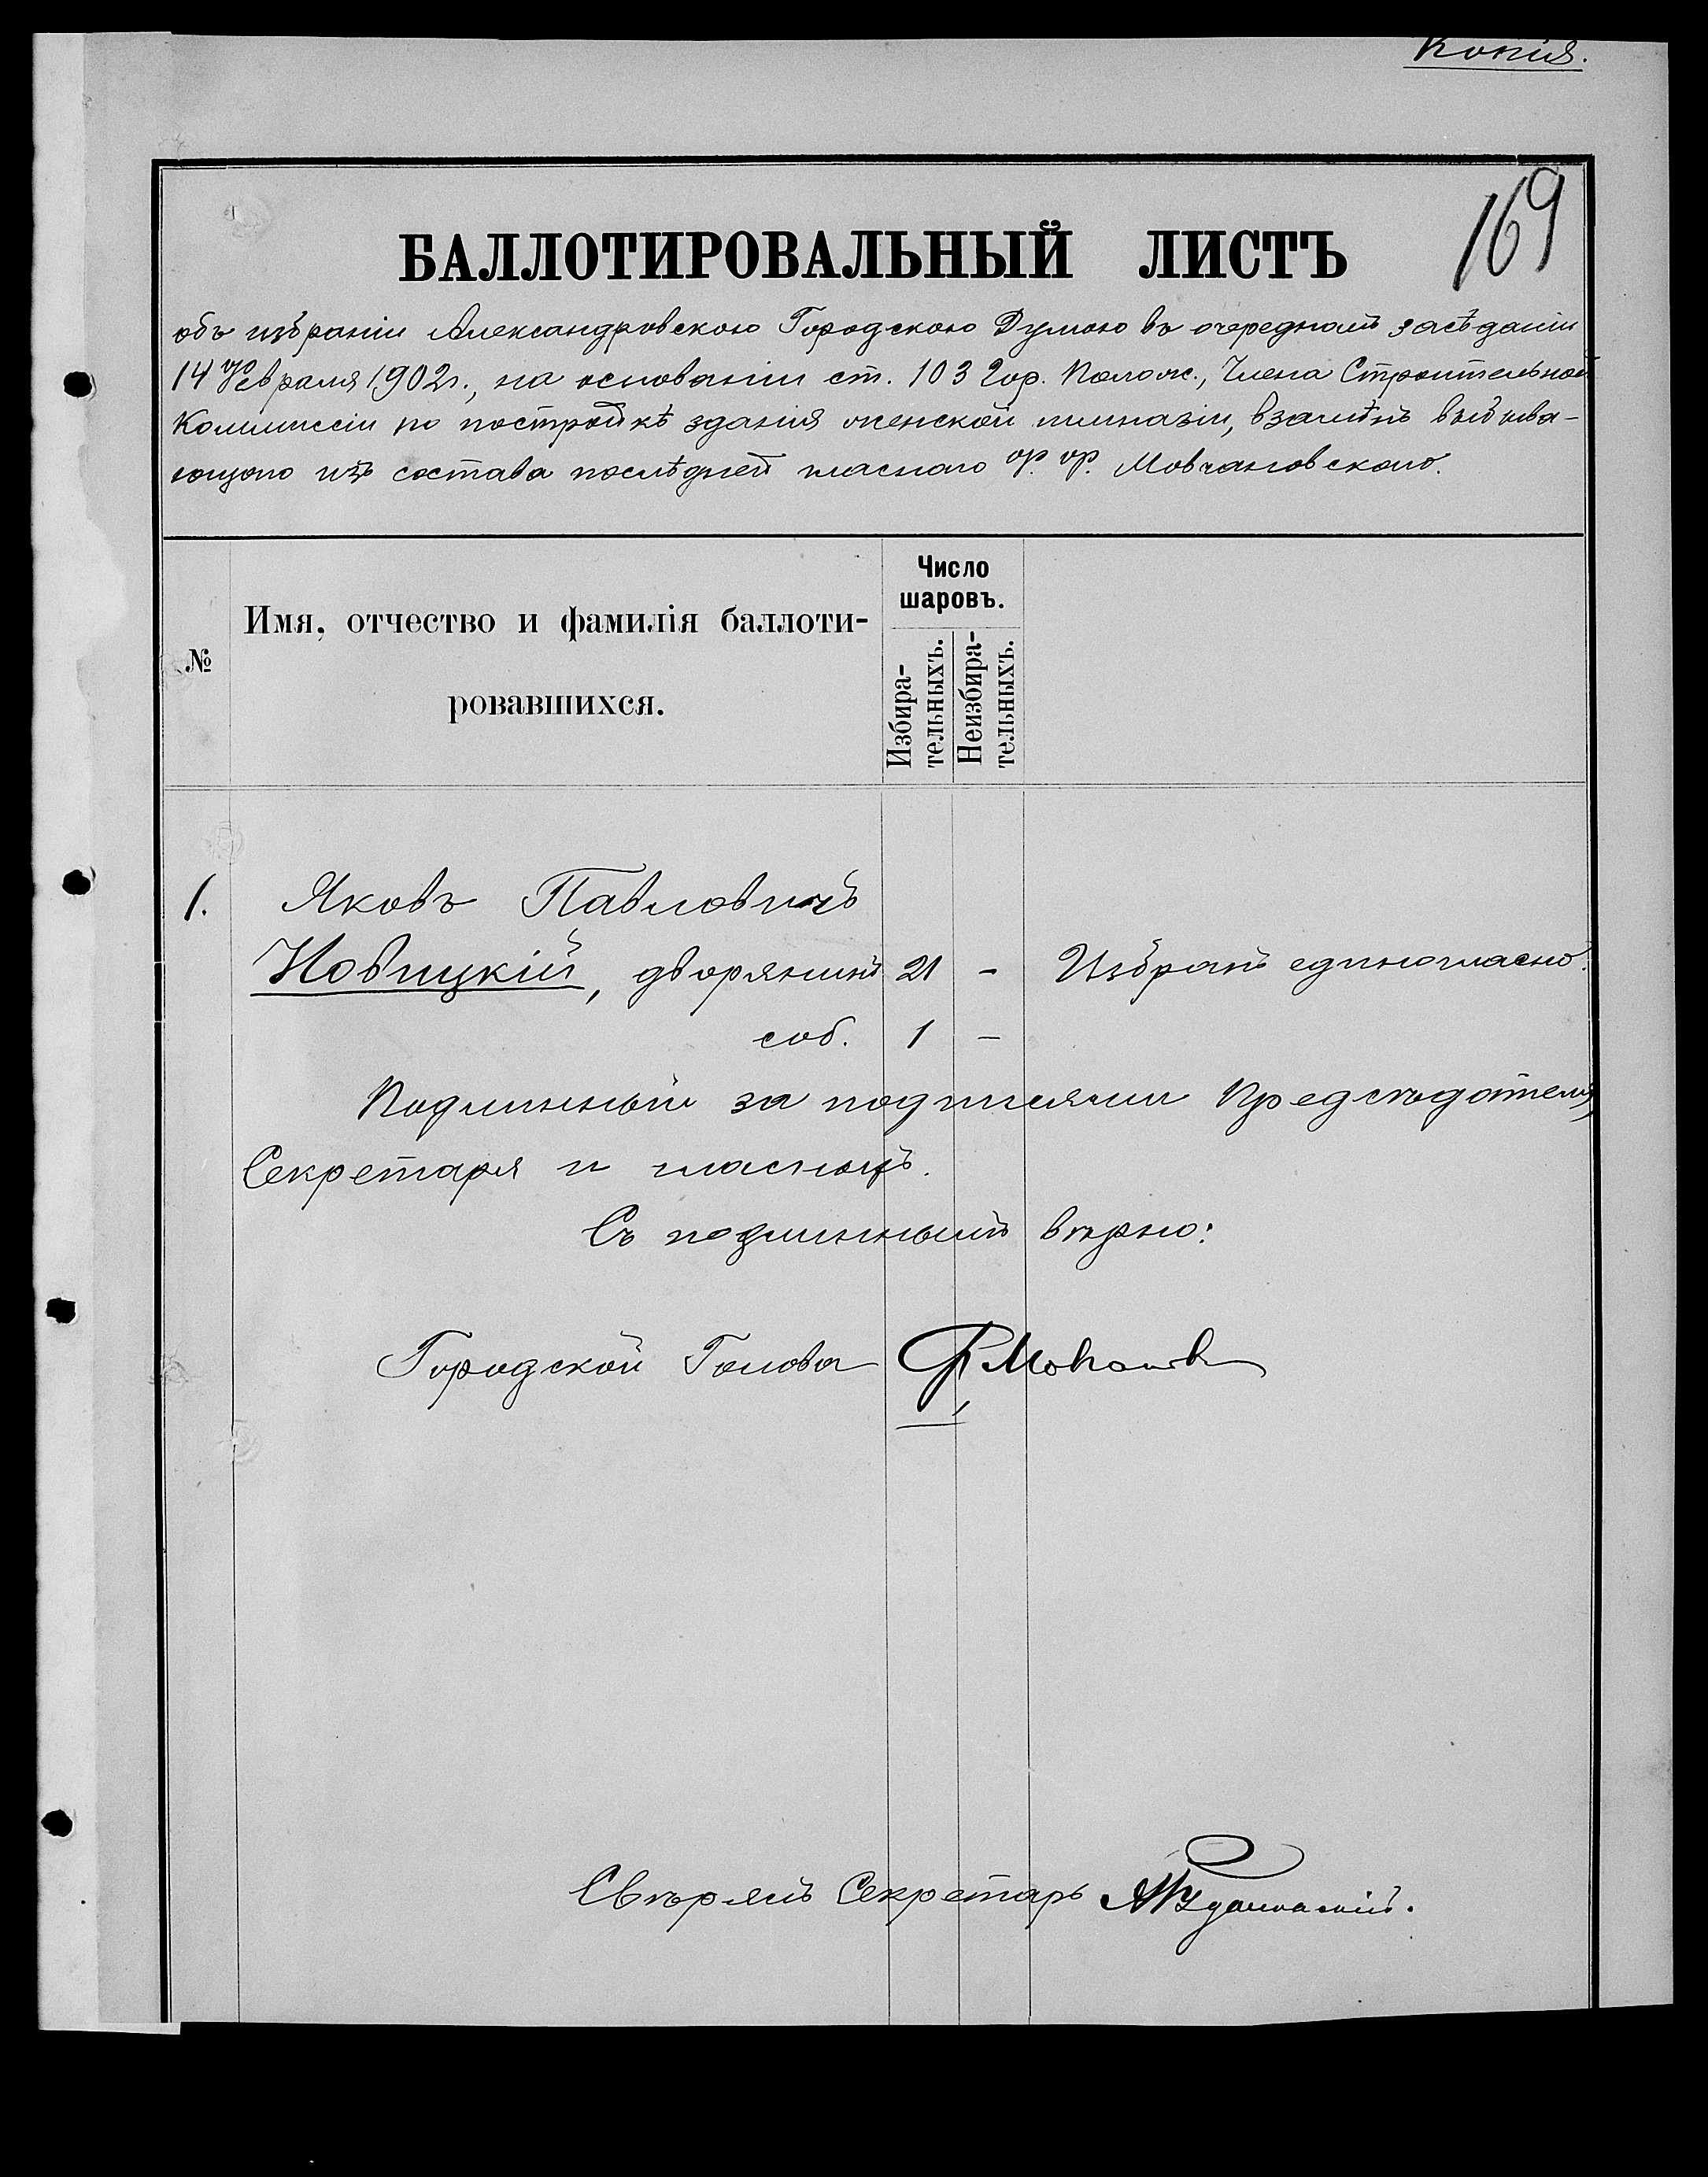 Копія.
169
БАЛЛОТИРОВАЛЬНЫЙ ЛИСТЪ
объ избраніи Александровскою Городскою Думою въ очередномъ засѣданіи
14 Февраля 1902 г., на основаніи ст. 103 Гор. Полож., Члена Строительной
Коммиссіи по постройкѣ зданія женской гимназіи, взамѣнъ выбыва-
ющаго изъ состава послѣдней гласнаго Ф. Ф. Мовчановскаго.
№
Имя, отчество и фамилія баллоти-
ровавшихся.
Число
шаровъ.
Избира-
тельныхъ.
Неизбира-
тельныхъ.
1. Яковъ Павловичъ
Новицкій, дворянинъ 21 - Избранъ единогласно.
соб. 1 -
Подлинный за подписями Предсѣдателя,
Секретаря и гласныхъ.
Съ подлиннымъ вѣрно:
Городской Голова Ф. Мовчановскій
Свѣрялъ Секретарь